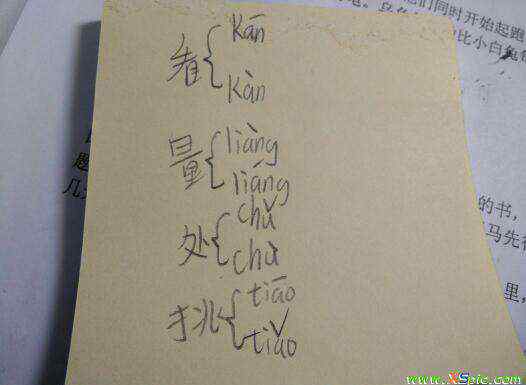 们同时开始起跑
比小白兔
看 kān
kàn
量 liàng
liáng
处 chǔ
chù
挑 tiāo
tiǎo
的书，
马先行
里，
几
www.XSpic.com